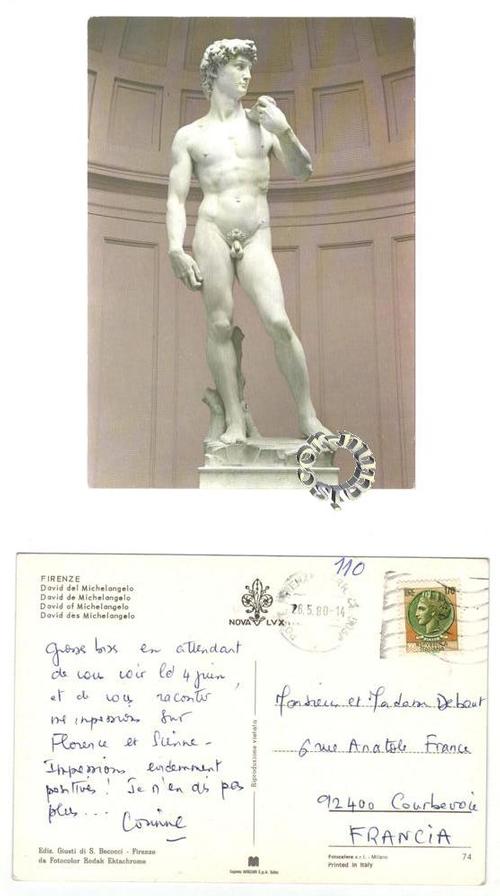 corinnuts
FIRENZE
David del Michelangelo
David de Michelangelo
David of Michelangelo
David des Michelangelo
NOVA LVX
110
26.5.80-14
170
Grosse bise en attendant
de vous voir le 4 juin,
et de vous raconter
mes impressions sur
Florence et Sienne -
Impressions évidemment
positives! Je n'en dis pas
plus...
Corinne
Riproduzione vietata
Monsieur et Madame Debout
6 rue Anatole France
92400 Courbevoie
FRANCIA
Ediz. Giusti di S. Becocci - Firenze
da Fotocolor Kodak Ektachrome
Fotocelere s.r.l. - Milano
Printed in Italy
74